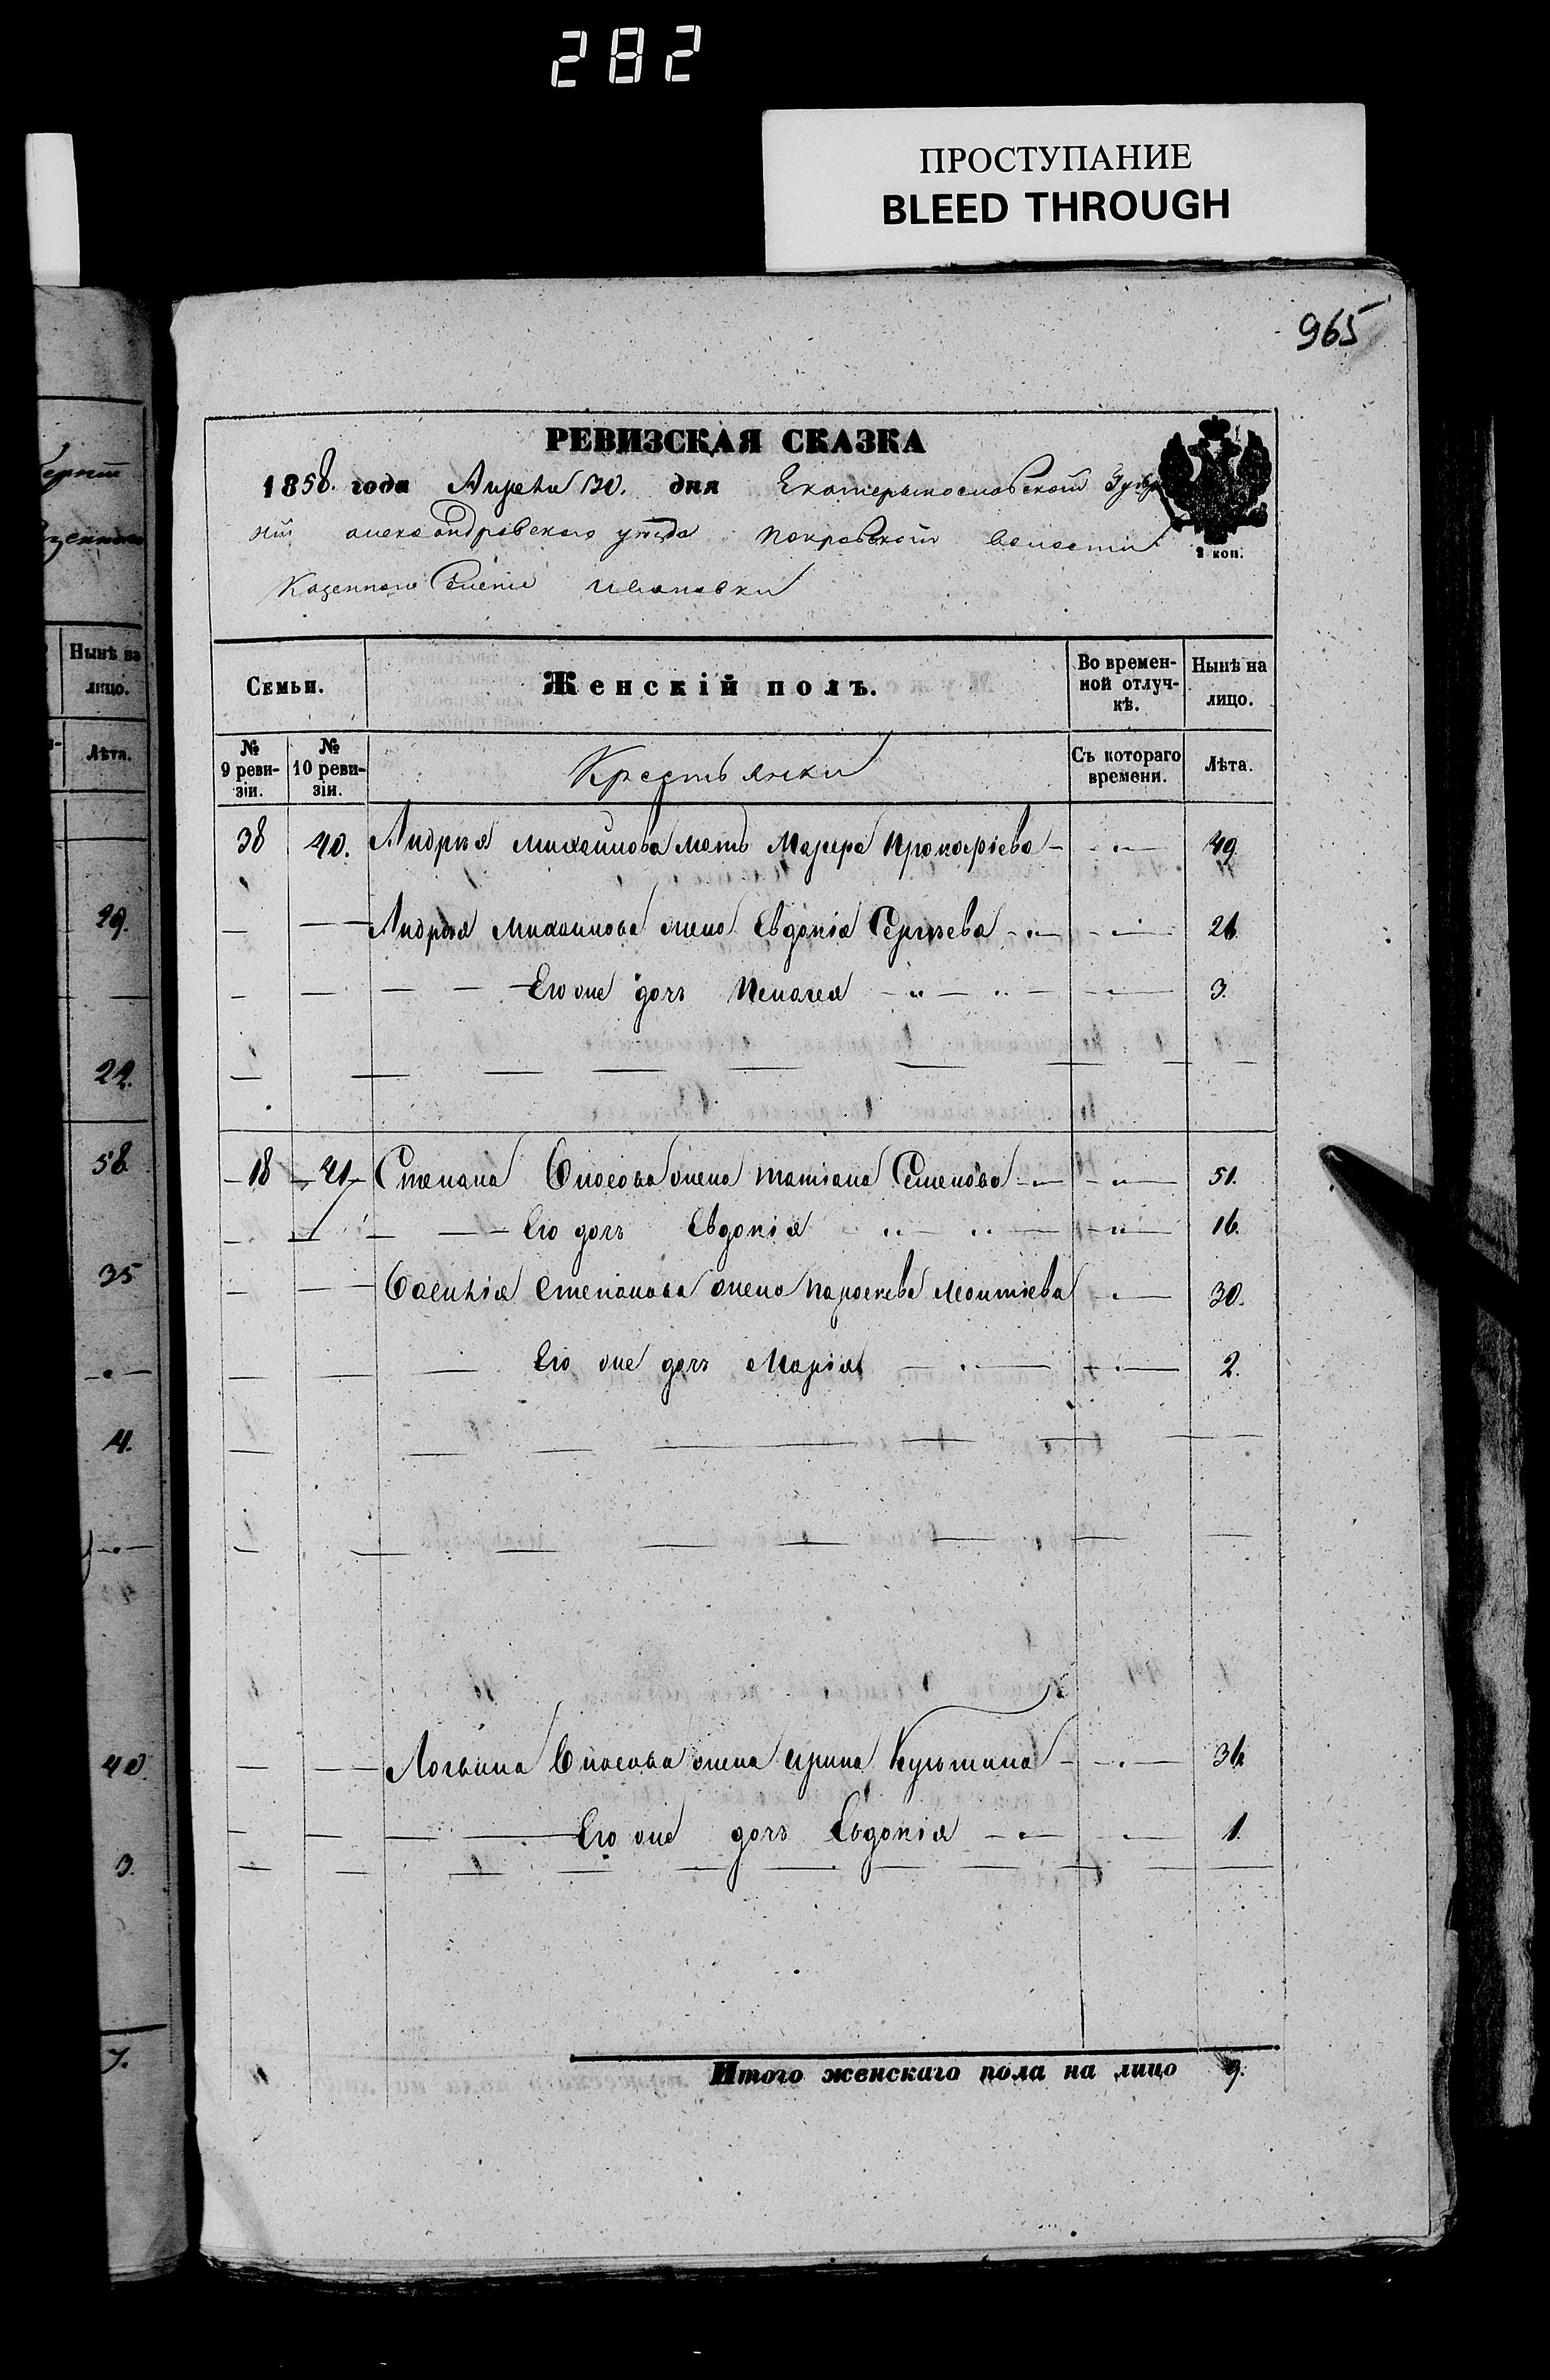 282
ПРОСТУПАНИЕ
BLEED THROUGH
965
РЕВИЗСКАЯ СКАЗКА
1858. года Апреля 30. дня Екатеринославской Губер
ніи александровскаго уезда покровской волости
2 коп.
Казеннаго Селенія Ивановки
Нынѣ на лицо.
Лѣта.
29.
22.
58
35
4.
40
3.
7.
Семьи. Женскій полъ. Во временной отлучкѣ. Нынѣ на лицо.
№ 9 ревизіи. № 10 ревизіи. Крестьянки Съ котораго времени. Лѣта.
38 40. Андрея михайлова мать Марфа Прокофіева 49.
Андрея Михайлова жена Евдокія Сергѣева 26.
Его же дочь Пелагея 3.
18 41 Степана Власова жена татіана Семенова 51.
Его дочь Евдокія 16.
Василія Степанова жена парасковя Леонтіева 30.
Его же дочь Марія 2.
Логвина Власова жена ирина Кузьмина 36
Его же дочь Евдокія 1.
Итого женскаго пола на лицо 9.